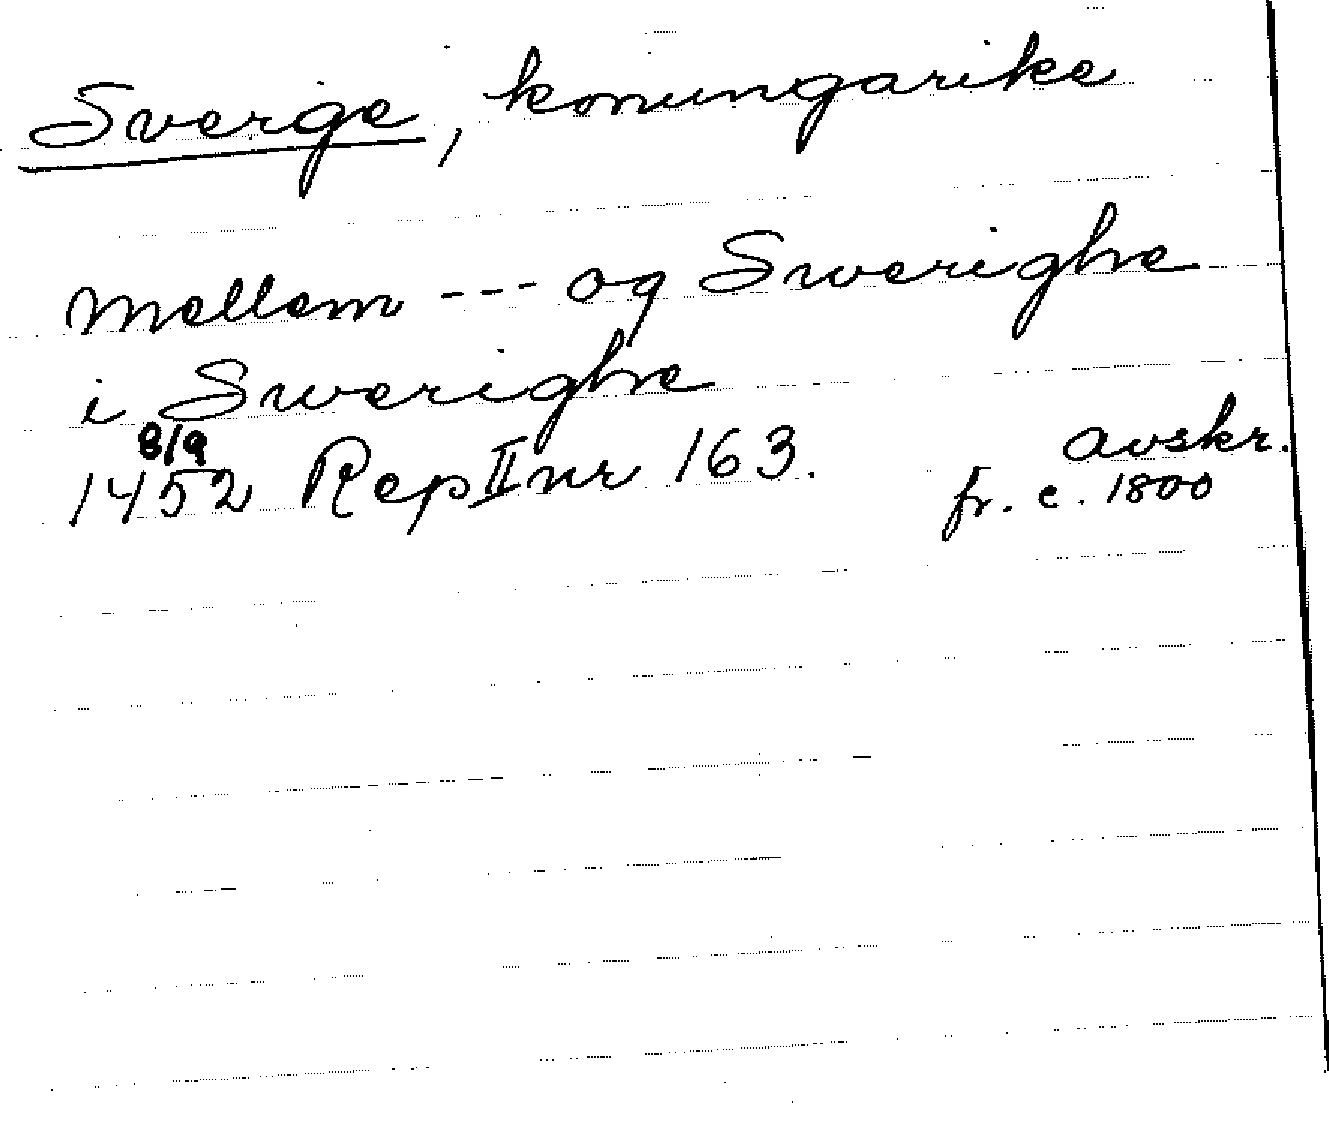 Sverige, konungarike
mellem --- og Swerighe
i Swerighe
8/9
1452 Rep II nr 163. avskr.
fr. c. 1800